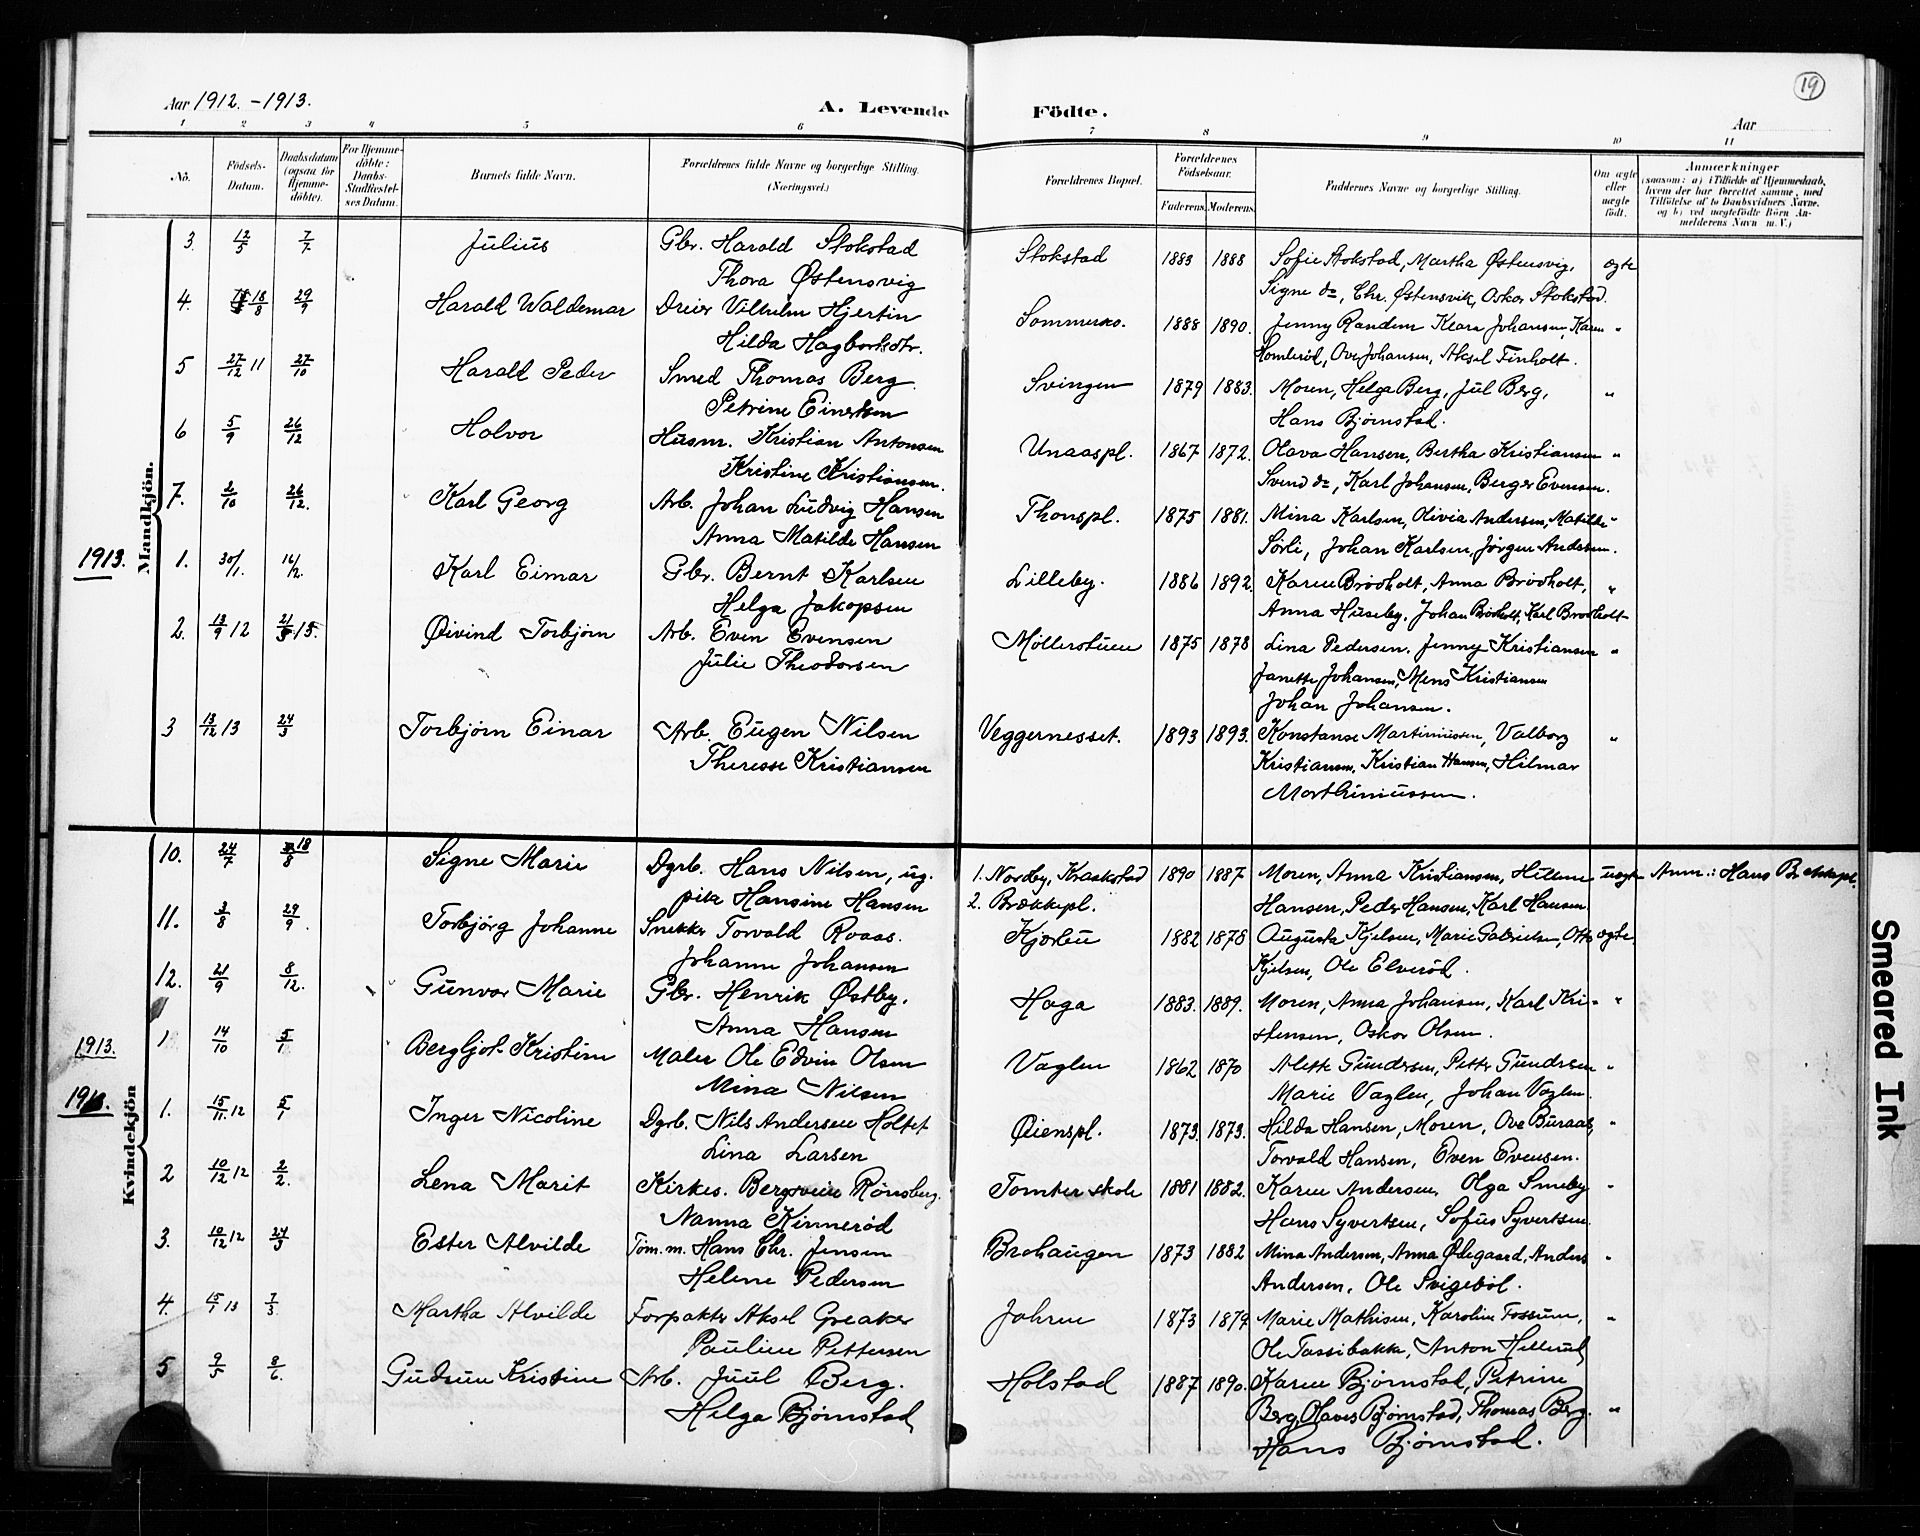 Aar 1912.-1913. A. Levende Födte. Aar
19
1 2 3 4 5 6 7 8 9 10 11
No. Födsels-Datum. Daabsdatum (ogsaa for Hjemme-döbte). For Hjemme-döbte: Daabs-Stadfæstel-ses Datum. Barnets fulde Navn. Forældrenes fulde Navne og borgerlige Stilling. (Næringsvei.) Forældrenes Bopæl. Forældrenes Födselsaar. Faderens. Moderens. Faddernes Navne og borgerlige Stilling. Om ægte eller uægte födt. Anmærkninger (saasom: a) i Tilfælde af Hjemmedaab, hvem der har forrettet samme, med Tilföielse af to Daabsvidners Navne, og b) ved uægtefödte Börn An-melderens Navn m. V.)
Mandkjön.
3. 12/5 7/7 Julius Gbr. Harald Stokstad Stokstad 1883 1888 Sofie Stokstad, Martha Østensvig, ægte
Thora Østensvig Signe do, Chr. Østensvik, Oskar Stokstad.
4. 18/8 29/9 Harald Waldemar Dreier Vilhelm Hjertin 1888 1890. Jenny Randem Klara Johansen, Karen "
Hilda Hagborksdtr. Ove Johansen, Aksel Finholt.
5 27/12 11 27/10 Harald Peder Smed Thomas Berg. Svingen 1879 1883. Moren, Helga Berg, Jul Berg, "
Petrine Einertsen Hans Bjørnstad.
6 5/9 26/12 Halvor Husm. Kristian Antonsen Unaaspl. 1867 1872. Olava Hansen, Bertha Kristiansen "
Kristine Kristiansen. Svend do, Karl Johansen, Berger Evensen.
7. 2/10 26/12. Karl Georg Arb. Johan Ludvig Hansen Thonspl. 1875 1881. Mina Karlsen, Olivia Andersen, Matilde "
Anna Matilde Hansen Sörli, Johan Karlsen, Jørgen Andersen.
1913. 1. 30/1. 16/2. Karl Eimar Gbr. Bernt Karlsen Lilleby. 1886 1892. Karen Brödholt, Anna Brödholt, "
Helga Jakopsen Anna Huseby, Johan Brödholt, Karl Brodholt
2. 13/9 12 Øivind Torbjørn Arb. Even Evensen Møllerstuen 1875 1878 Lina Pedersen. Jenny Kristiansen "
Julie Theodorsen Janette Johansen, Mens Kristiansen
Johan Johansen.
3 13/12 13 24/3 Torbjørn Einar Arb. Eugen Nilsen Veggernesset. 1893 1893. Konstanse Martinussen, Valborg "
Theresse Kristiansen Kristiansen, Kristian Hansen, Hilmar
Marthinussen.
Kvindekjön
10. 24/7 18/8 Signe Marie Dgrb. Hans Nilsen, ug. 1. Nordby, Kraakstad 1890 1887 Moren, Anna Kristiansen, Hellene uægte Anm.: Hans
pike Hansine Hansen 2. Brækkepl. Hansen, Peder Hansen, Karl Hansen
11. 3/8 29/9. Torbjörg Johanne Snekker Torvald Roaas. 1882 1878 Augusta Kjelsen, Marie Gabrielsen, Otto ægte
Johanne Johansen Kjelsen, Ole Elveröd.
12. 21/9 8/12. Gunvor Marie Gbr. Henrik Østby. Haga 1883. 1889. Moren, Anna Johansen, Karl Kri- "
Anna Hansen stensen, Oskar Olsen.
1913. 1 14/10 5/1 Bergljot Kristine Maler Ole Edvin Olsen Vaglen 1862 1870 Alette Gundersen, Petter Gundersen "
Mina Nilsen Marie Vaglen, Johan Vaglen.
1913. 1. 15/11. 12 5/1 Inger Nicoline Dgrb. Nils Andersen Holtet Øienspl. 1873. 1873. Hilda Hansen, Moren, Ove Buraas, "
Lina Larsen Torvald Hansen, Even Evensen.
2 10/12 12 2/2. Lena Marit Kirkes. Bergsvein Rönsberg. Tomter skole 1881 1882. Karen Andersen, Olga Smeby "
Nanna Kinneröd Hans Syvertsen, Sofus Syvertsen.
3. 10/12 12 24/3 Ester Alvilde Töm.m. Hans Chr. Jensen Brohaugen 1873 1882 Mina Andersen, Anna Ødegaard, Anders "
Helene Pedersen Andersen, Ole Svigeböl.
4. 15/1 13 7/3. Martha Alvilde Forpakter Aksel Greaker Jahren 1873 1879 Marie Mathisen, Karoline Fossum, "
Pauline Pettersen Ole Tassibakke, Anton Hellerud,
5 9/5 8/6. Gudrun Kristine Arb. Juul Berg. Holstad 1887 1890. Karen Bjørnstad, Petrine
Helga Bjørnstad, Berg, Olaves Bjørnstad, Thomas Berg. "
Hans Bjørnstad.
Smeared Ink